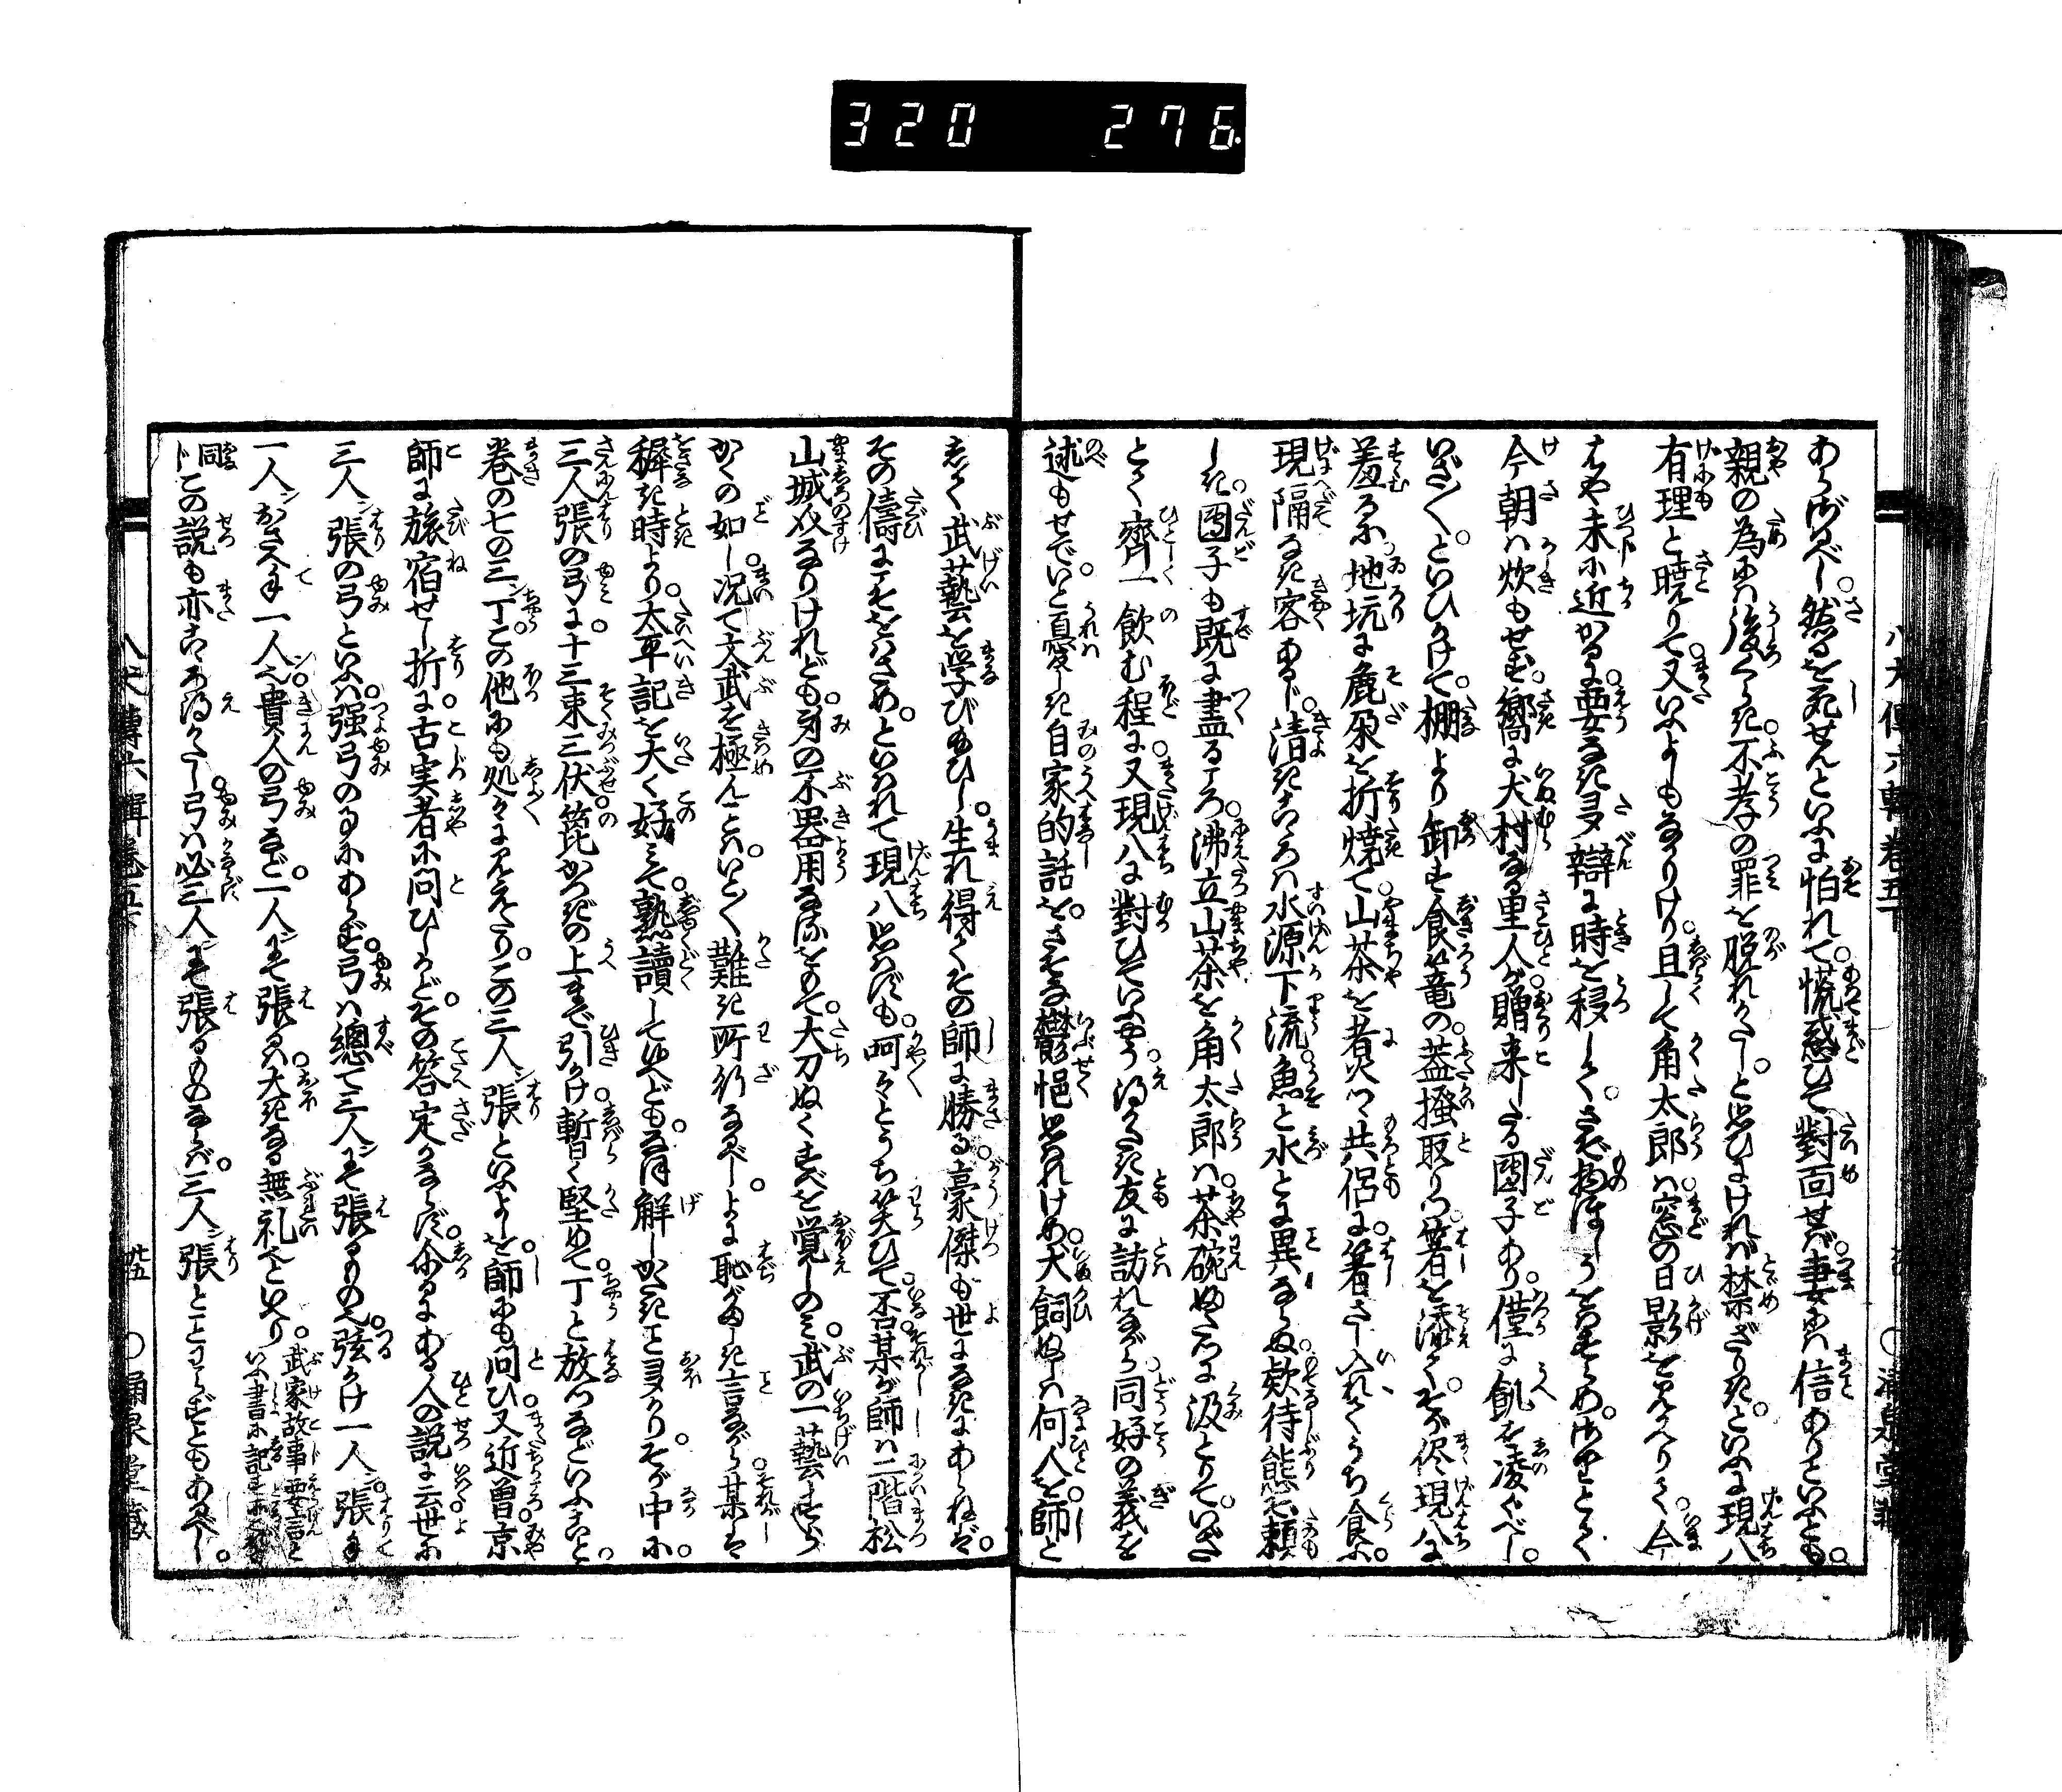 320 276
あらざるべし。然るを死せんといふに怕れて。慌惑ひて對面せば。妻には信ありといふとも。
親の為には後くらき。不孝の罪を脱れがたし。と思ひにければ禁めざりき。といふに現八
有理と曉りて。又いふよしもなかりけり。且して角太郎は。窓の日影を見かへりて。今
はや未に近かるに。要なき多辯に時を移して。さぞ物ほしうをはすらめ。御やどとく
今朝は炊もせず。嚮に犬村なる里人が。贈来したる團子あり。僅に飢を凌ぐべし。
いざ〳〵。といひかけて。棚より卸す食篭の。蓋掻取りつ。箸を添て。そが侭現八に
羞るに。地坑に麁朶を折焼て。山茶を煮つゝ共侶に。箸さし入れてうち食ふ。
現隔なき客あるじ。清きこゝろは水源下流。魚と水とに異ならぬ。欵待態ぞ頼
しき。團子も既に盡るころ。沸立山茶を角太郎は。茶碗ぬたひに汲とりて。いざ
とて齊一飲む程に。又現八に對ひていふやう。得がたき友に訪れながら。同好の義を
述もせで。いと憂しき自家的話を。さぞな鬱悒思れけめ。犬飼ぬしは何人を。師と
して武藝を学び給ひし。生れ得てその師に勝る。豪傑が世になきにあらねど。
その儔にこそをはさめ。といはれて現八思はずも。呵々とうち笑ひて。否。某が師は二階松
山城介なりけれども。身の不器用なるをもて。大刀ぬくすべを覚しのみ。武の一藝すら
かくの如し。况て文武を極んことは。いと〳〵難き所行なるべし。よに恥がましき言ながら。某は
穉き時より。太平記を太く好みて。熟讀して候へども。なほ解しがたきこと多かり。そが中に。
三人張の弓に。十三束三伏。箆かつぎの上まで引かけ。暫く堅めて。丁と放つなどいふこと。
巻の七の三丁。この他にも処々に見えたり。この三人張といふよしを。師にも問ひ。又近曽京
師に旅宿せし折に。古実者に問ひしかど。その答定かならず。尒るにある人の説に云。世に
三人張の弓といふは。强弓の事にあらず。弓は總て三人にて張るもの也。弦かけ一人。張て
一人。おさえて一人也。貴人の弓など。一人にて張るは。大きなる無礼也といへり。武家故事要言と
いふ書に記す所も
同じ。この説も亦こゝろ得がたし。弓は必三人にて張るものならば。三人張とことわらずともあるべし。
八犬傳六輯卷五下
廿五
○涌泉堂藏